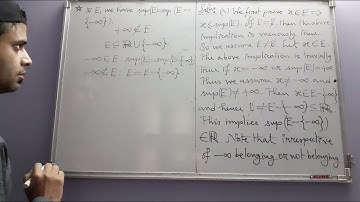 * to E, we have sup(E)=sup(E-
{-∞})
+∞ ∉ E
E ⊆ ℝ ∪ {-∞}
-∞ ∈ E: sup(E)=sup(E-{-∞})
-∞ ∉ E: E = E-{-∞}
(v) We first prove x ∈ E ⇒
x ≤ sup(E). If E = ∅, then the above
implication is vacuously true.
So we assume E ≠ ∅. Let x ∈ E.
The above implication is trivially
true if x = -∞ or sup(E) = +∞.
Thus we assume x ≠ -∞ and
sup(E) ≠ +∞. Then x ∈ E-{-∞}
and hence ∅ ≠ E-{-∞} ⊆ ℝ.
This implies sup(E-{-∞})
∈ ℝ. Note that irrespective
of -∞ belonging or not belonging